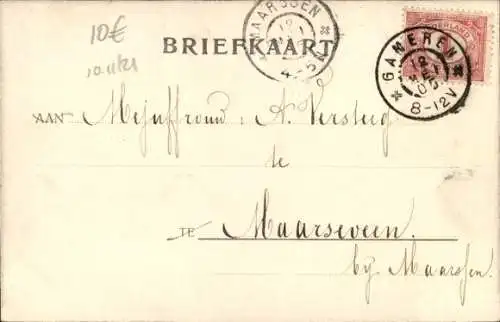 10€
MAARSSEN
12
4-5N
BRIEFKAART
NEDERLAND
GAMEREN
12
05
8-12V
AAN Mejuffrouw: A. Versteeg
te
TE Maarseveen
bij Maarssen.